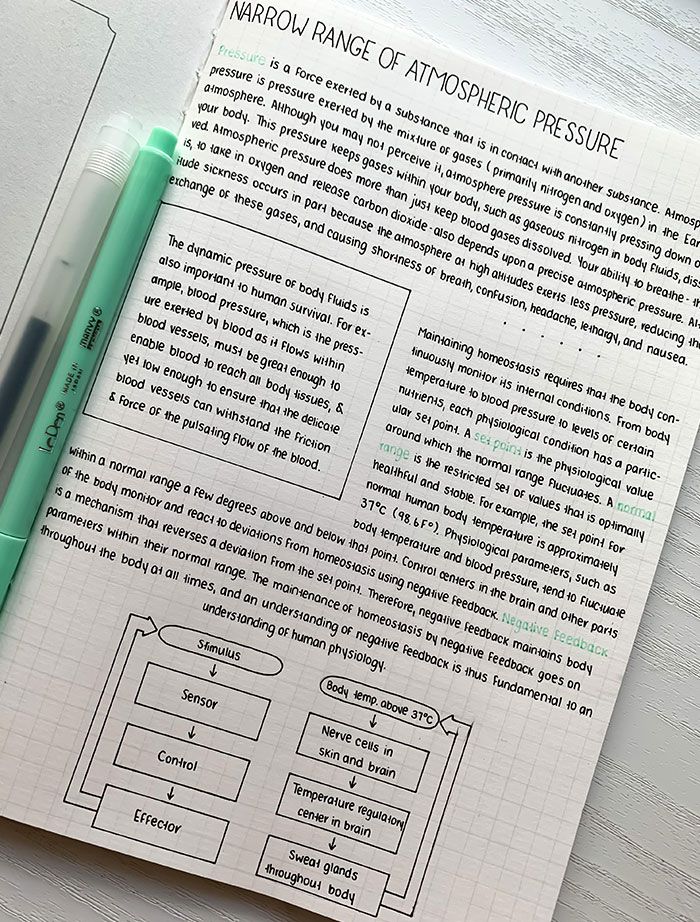 NARROW RANGE OF ATMOSPHERIC PRESSURE
Pressure is a force exerted by a substance that is in contact with another substance. Atmosp
pressure is pressure exerted by the mixture of gases (primarily nitrogen and oxygen) in the Ear
atmosphere. Although you may not perceive it, atmosphere pressure is constantly pressing down o
your body. This pressure keeps gases within your body, such as gaseous nitrogen in body fluids, diss
ved. Atmospheric pressure does more than just keep blood gases dissolved. Your ability to breathe - th
is, to take in oxygen and release carbon dioxide - also depends upon a precise atmospheric pressure. Al-
itude sickness occurs in part because the atmosphere at high altitudes exerts less pressure, reducing the
exchange of these gases, and causing shortness of breath, confusion, headache, lethargy, and nausea.
The dynamic pressure of body fluids is
also important to human survival. For ex-
ample, blood pressure, which is the press-
ure exerted by blood as it flows within
blood vessels, must be great enough to
enable blood to reach all body tissues, &
yet low enough to ensure that the delicate
blood vessels can withstand the friction
& force of the pulsating flow of the blood.
Maintaining homeostasis requires that the body con-
tinuously monitor its internal conditions. From body
temperature to blood pressure to levels of certain
nutrients, each physiological condition has a partic-
ular set point. A set point is the physiological value
around which the normal range fluctuates. A normal
range is the restricted set of values that is optimally
healthful and stable. For example, the set point for
normal human body temperature is approximately
37°C (98.6F°). Physiological parameters, such as
body temperature and blood pressure, tend to fluctuate
within a normal range a few degrees above and below that point. Control centers in the brain and other parts
of the body monitor and react to deviations from homeostasis using negative feedback. Negative feedback
is a mechanism that reverses a deviation from the set point. Therefore, negative feedback maintains body
parameters within their normal range. The maintenance of homeostasis by negative feedback goes on
throughout the body at all times, and an understanding of negative feedback is thus fundamental to an
understanding of human physiology.
Stimulus
Sensor
Control
Effector
Body temp. above 37°C
Nerve cells in
skin and brain
Temperature regulatory
center in brain
Sweat glands
throughout body
LePen®
MADE IN
JAPAN
MARVY®